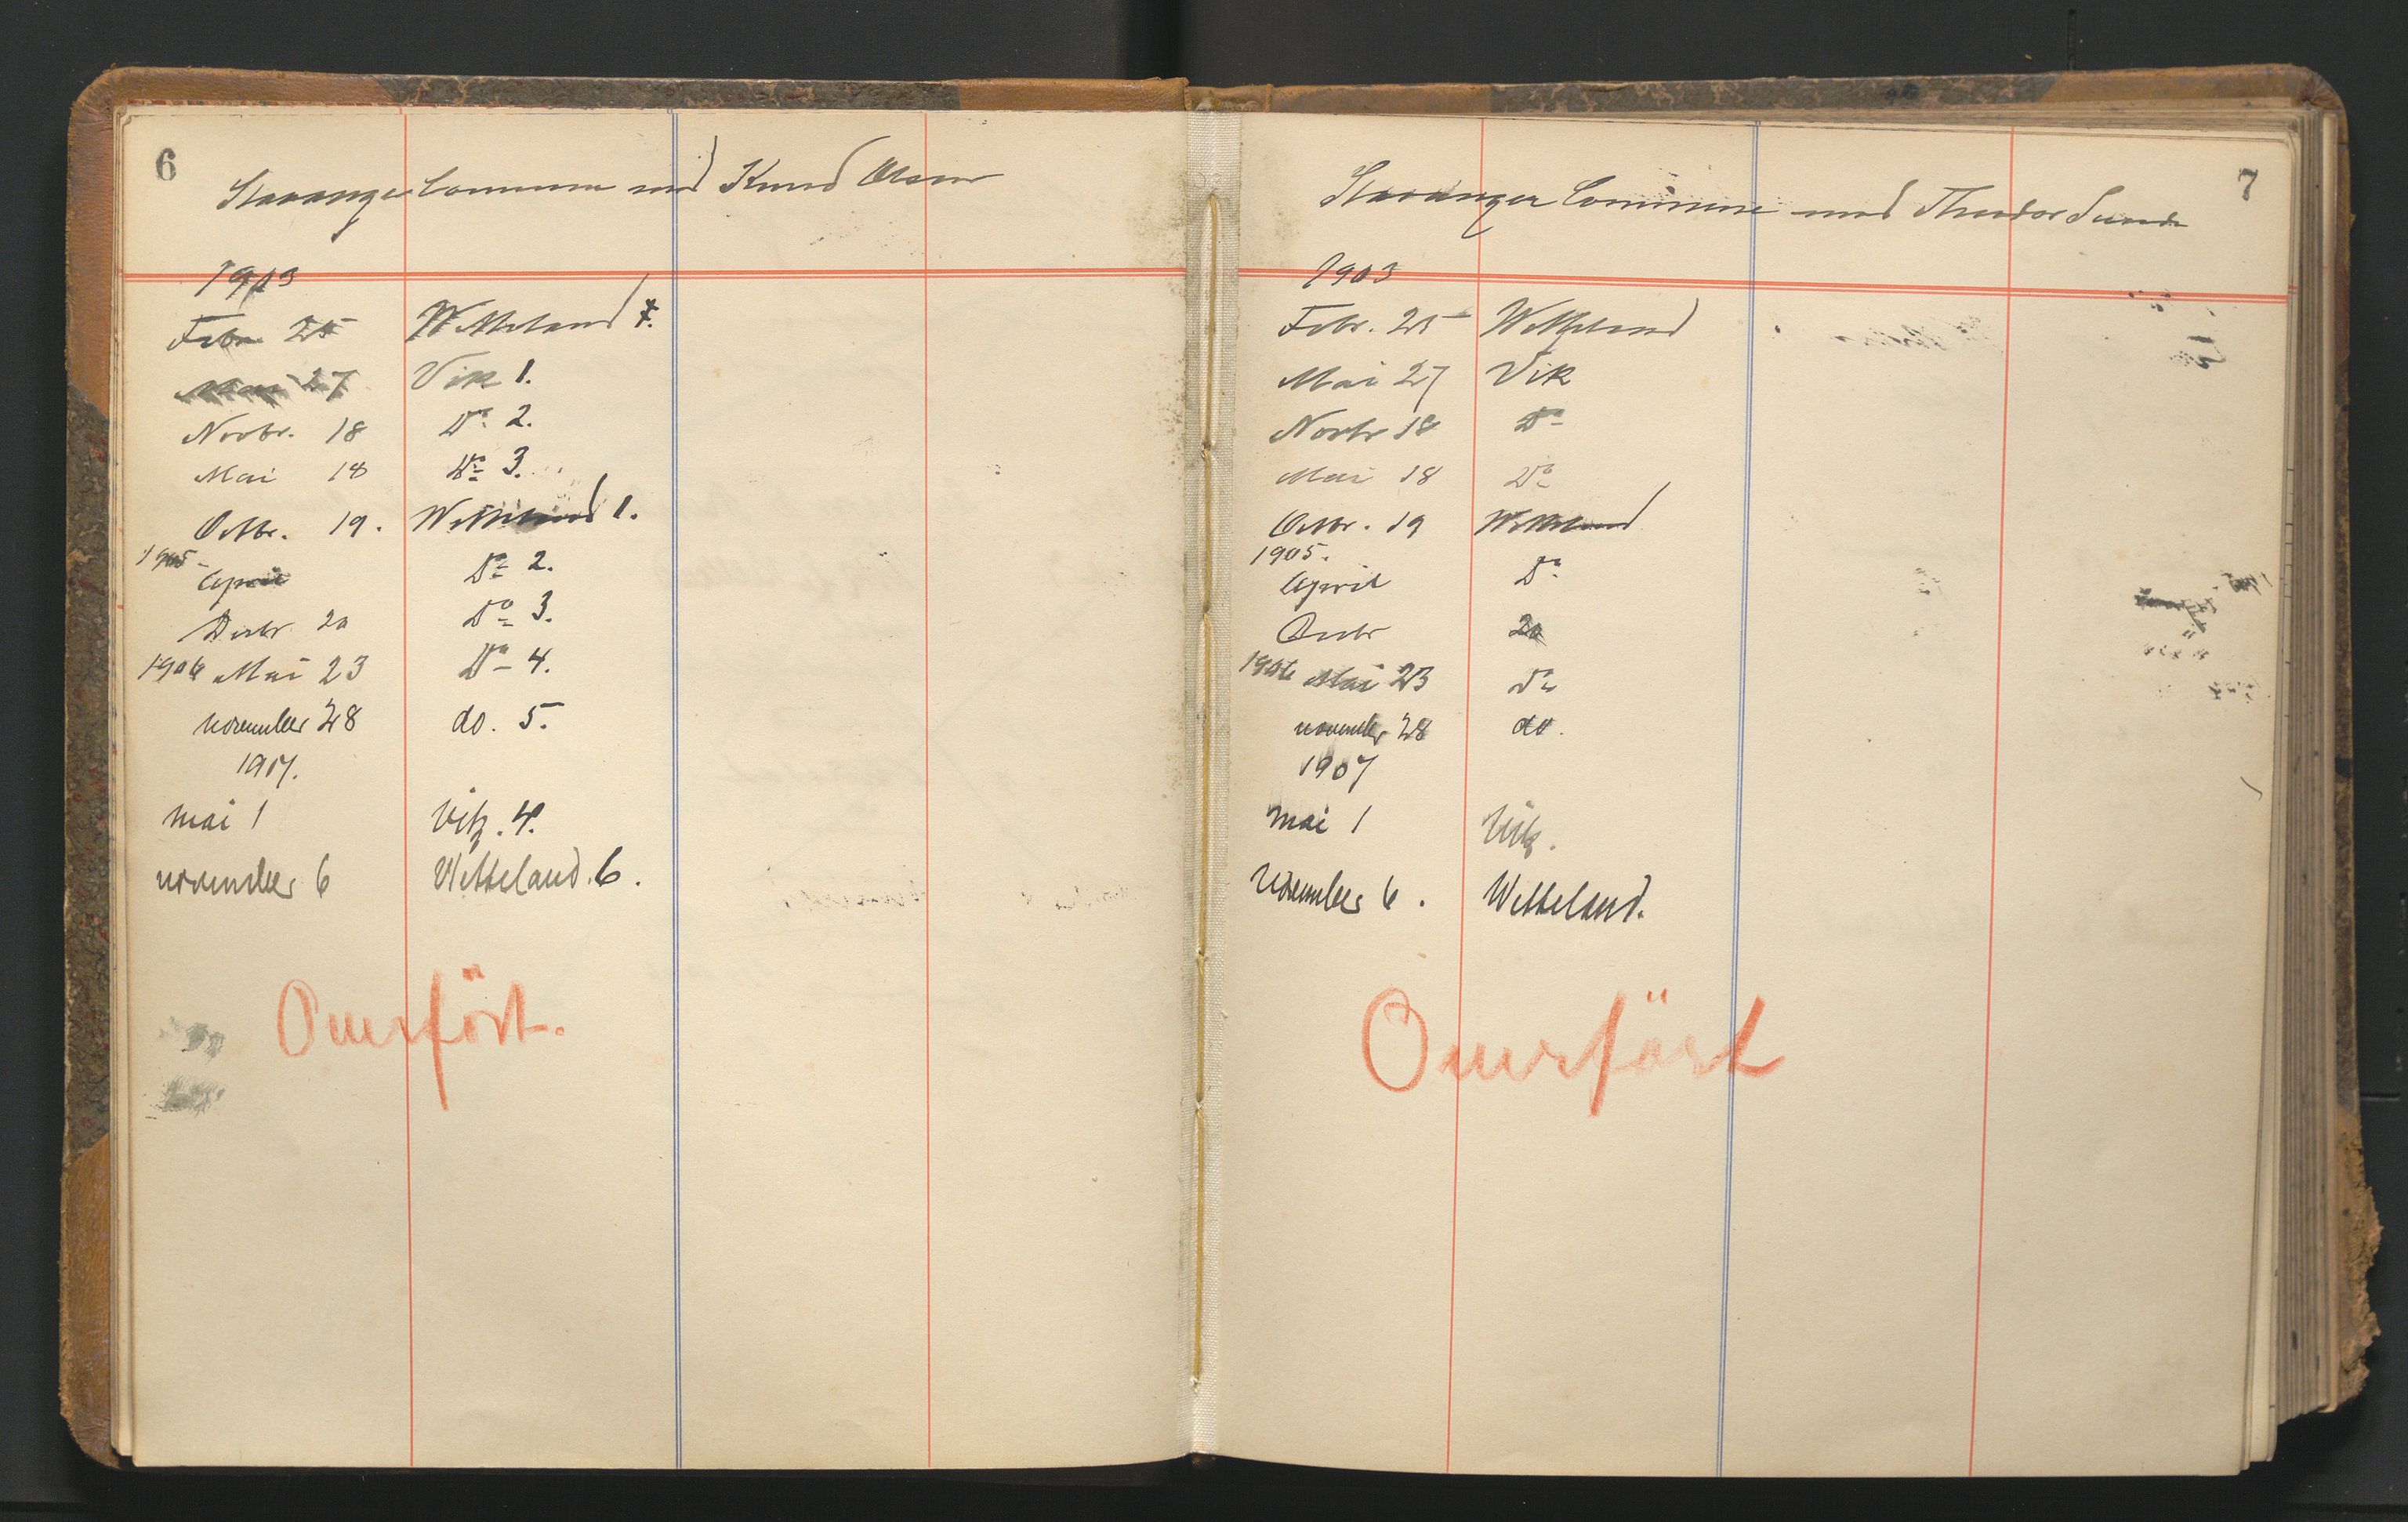 6
Stavanger Commune med Knud Olsen
1903
Febr 25 Wetteland
Mai 27 Vik 1.
Novbr. 18 Do 2.
Mai 18 Do 3.
Octbr. 19. Wetteland 1.
1905
April Do 2.
Decbr 20 Do 3.
1906 Mai 23 Do 4.
november 28 do. 5.
1907.
mai 1 Vik. 4.
november 6 Wetteland. 6.
Overfört.
7
Stavanger Commune med Theodor Sunde
1903
Febr. 25 Wetteland
Mai 27 Vik
Novbr 18 Do
Mai 18 Do
Octbr. 19 Wetteland
1905.
April Do
Decbr 20
1906 Mai 23 Do
november 28 do.
1907
mai 1 Vik.
november 6. Wetteland.
Overfört